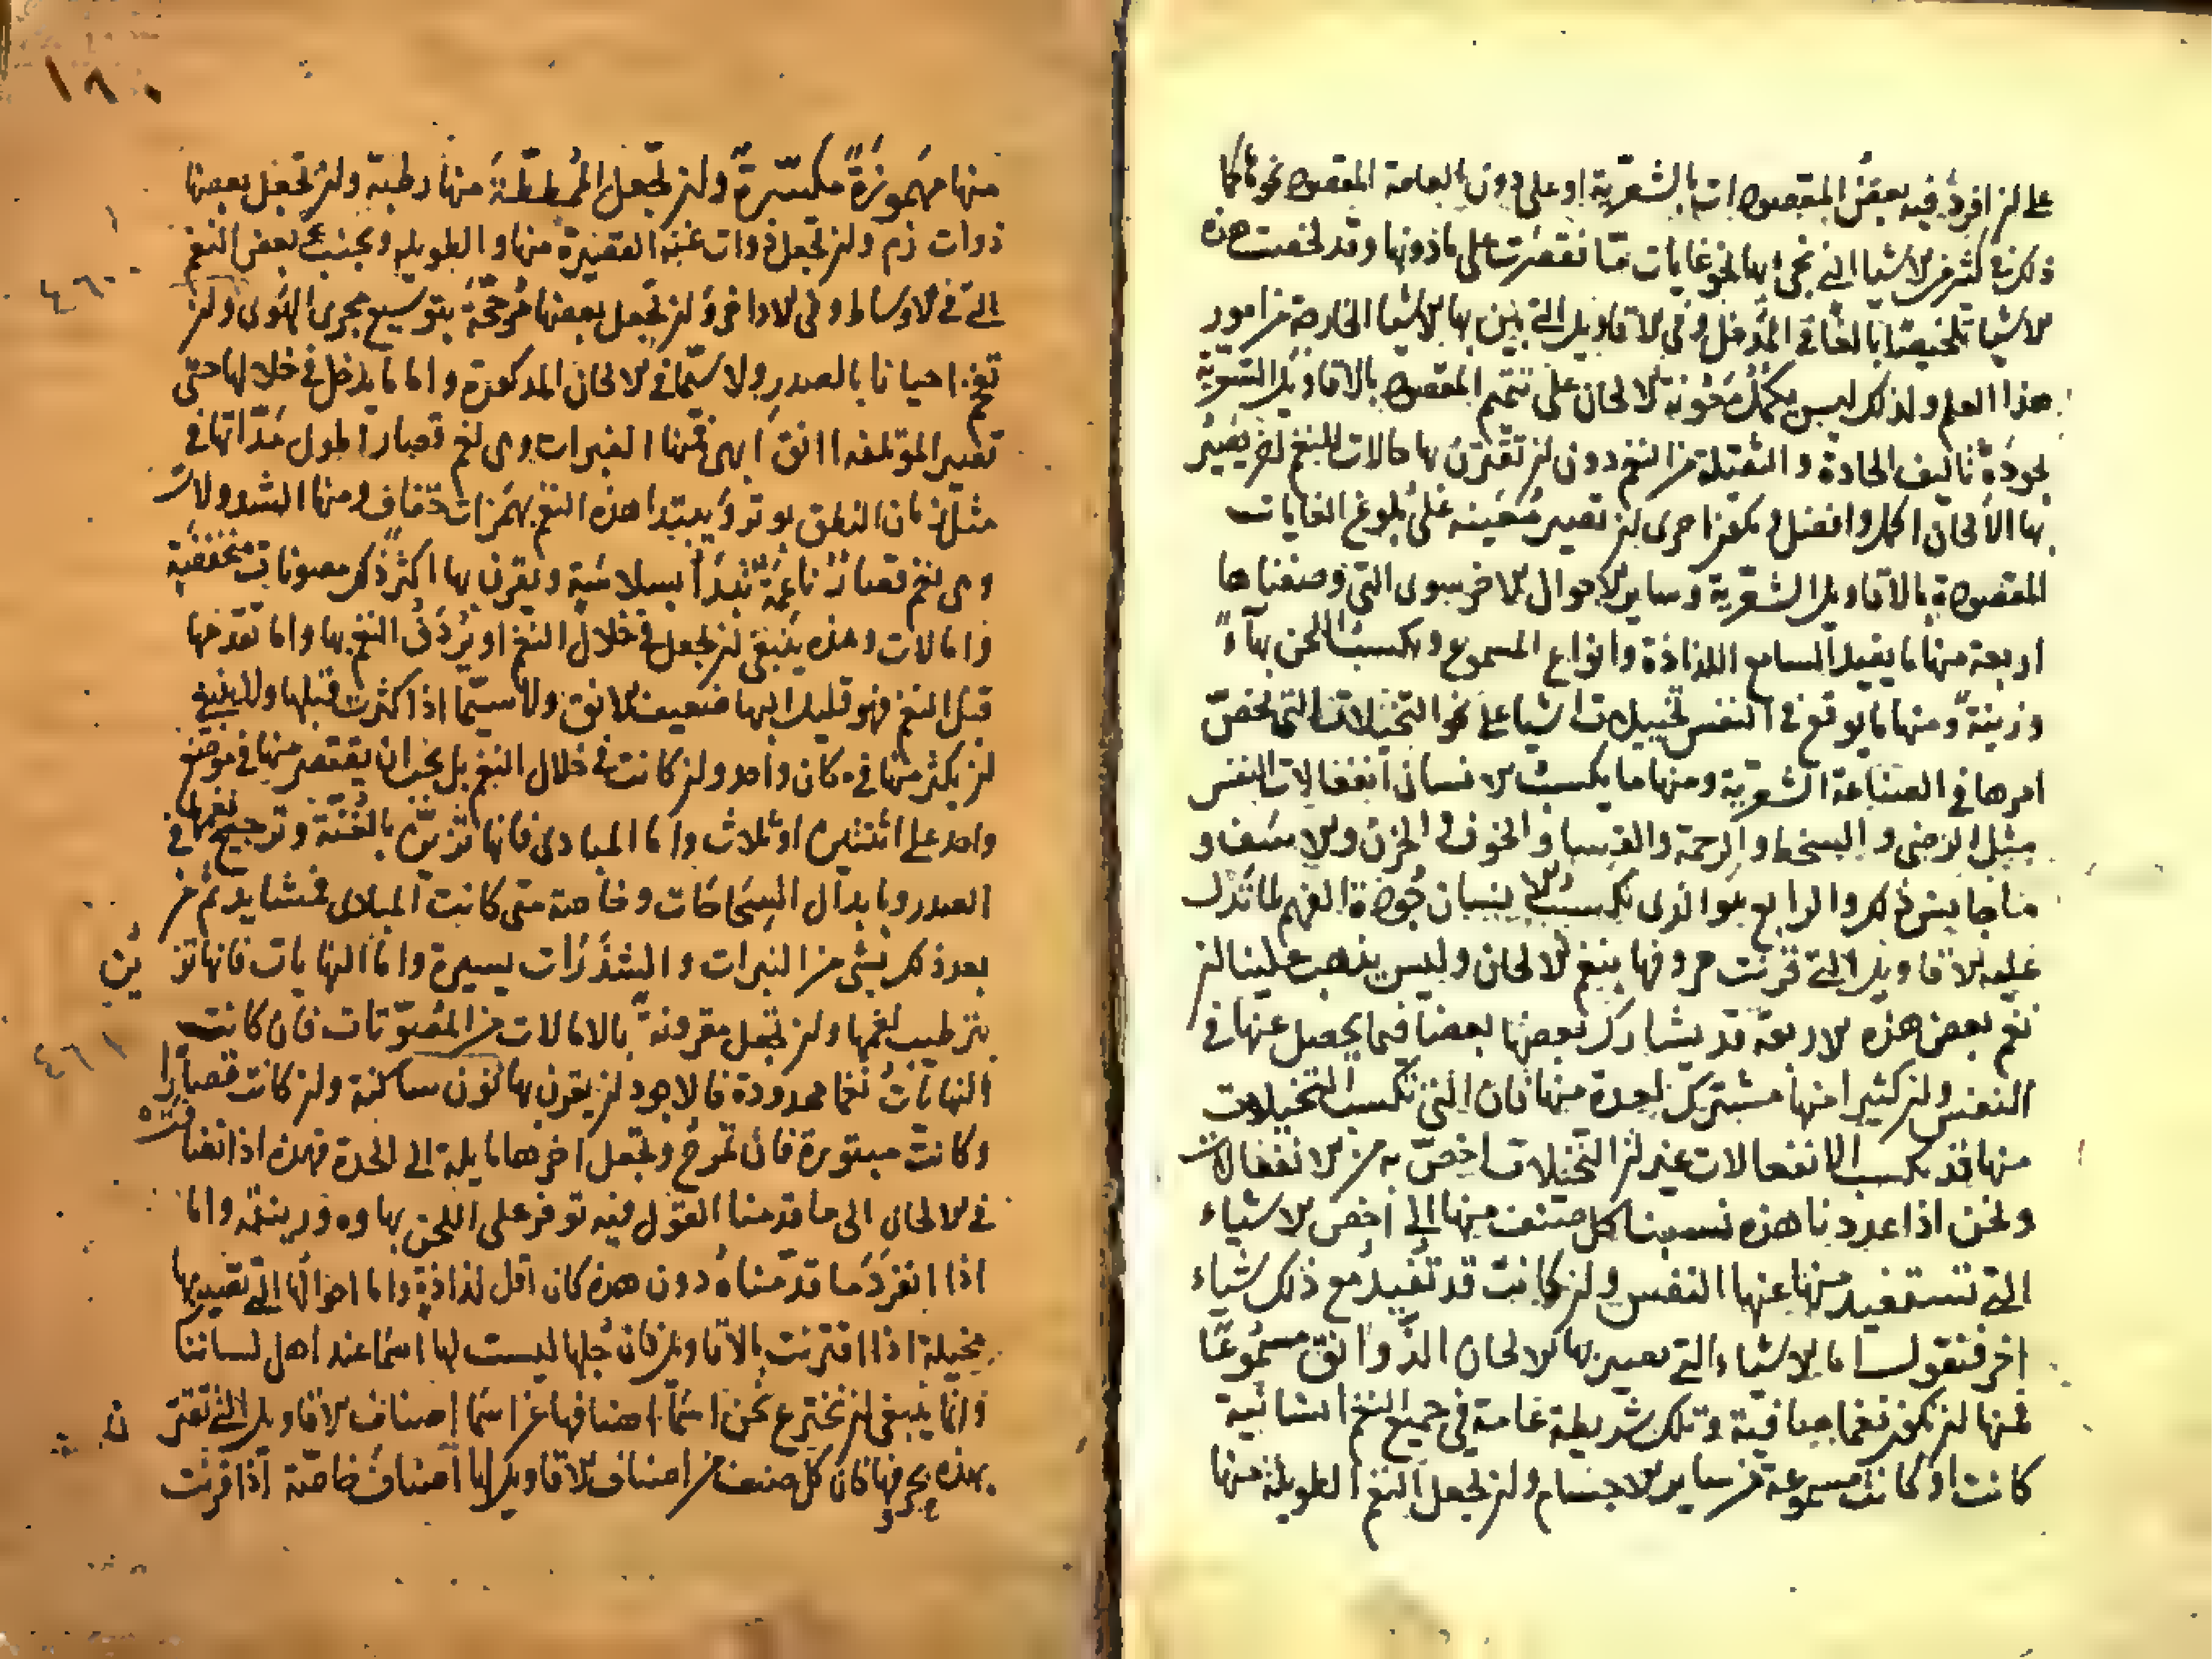 على ان افرد فيه بعض المقصودات بالشعرية او على دون العامة المقصود نحوها كما
ذلك في كثير من الاشيا التي نحى بها نحو غايات ما نقصرت على ما دونها وقد لخصت هذه
الاشيا تلخيصا بالغا في المدخل وفي الاقاويل التي بين بها الاشيا الخارجة من امور
هذا العلم ولذلك ليس يكمل معونة الالحان على تتميم المقصود بالاقاويل الشعرية
بجودة تاليف الحادة والثقيلة من النغم دون ان تقترن بها حالات للنغم اخر يصير
بها الالحان اكمل وافضل ويكون احرى ان تصير معينه على بلوغ الغايات
المقصودة بالاقاويل الشعرية وساير الاحوال الاخر سوى التي وصفناها
اربعة منها ما يفيد المسامع اللذاذة وانواع المسموع ويكسب اللحن بهآء
وزينة ومنها ما يوقع في النفس تخييلات اشيا على نحو التخييلات التي لخص
امرها في الصناعة الشعرية ومنها ما يكسب الانسان انفعالات النفس
مثل الرضى والسخط والرحمة والقساوة والخوف والحزن والاسف و
ما جانس ذلك والرابع هو الذى يكسب الانسان جودة الفهم لما تدل
عليه الاقاويل التي قرنت حروفها بنغم الالحان وليس يذهب علينا ان
نغم بعض هذه الاربعة قد يشارك بعضها بعضا فيما يحصل عنها في
النفس وان كثيرا منها مشترك لعدة منها فان التي تكسب التخيلات
منها قد تكسب الانفعالات غير ان التخيلات اخص به من الانفعالات
ونحن اذا عددنا هذه نسبنا كل صنف منها الى اخص الاشياء
التي تستفيد منها عنها النفس وان كانت قد تفيد مع ذلك شياء
اخر فنقول اما الاشياء التي تصير بها الالحان الذ وانق مسموعا
فمنها ان تكون نغما صافية وتلك شريطة عامة في جميع النغم انسانية
كانت او كانت مسموعة من ساير الاجسام وان تجعل النغم الطويلة منها
١٨٠
منها مهموزة مكسرة وان تجعل الممططة منها رطبة وان تجعل بعضها
ذوات زم وان تجعل ذوات غنة القصيرة منها والطويله وبجنب بعض النغم
٤٦٠
التي في الاوساط وفي الاواخر وان تجعل بعضها مرخمة بتوسيع مجرى الهوى وان
تغن احيانا بالصدر ولا سيما في الالحان المذكورة واما ما يدخل في خلالها حتى
تصير المؤتلفه اانق ابهى فمنها النبرات وهى نغم قصار اطول مداتها في
مثل زمان النطق بوتد ويبتدا هذه النغم بهمزات خفاف ومنها الشدرولات
وهى نغم قصار ناعمة تبدا بسلاسة ويقرن بها اكثر ذلك مصوتات مخففة
وامالات وهذه ينبغى ان تجعل في خلال النغم او يردف النغم بها واما تقدمها
قبل النغم فهو قليل البها ضعيف الانق ولا سيما اذا كثرت قبلها ولا ينبغي
ان يكثر منها في مكان واحد وان كانت في خلال النغم بل يجب ان يقتصر منها في موضع
واحد على اثنتين او ثلاث واما المبادى فانها تزين بالغنة وترجيح نغمها في
الصدر وابدال السحاجات وخاصة متى كانت المبادى نشايد ثم من
بعد ذلك بشى من النبرات والشذرات يسيرة واما النهايات فانها تز ين
بترطيب نغمها وان تجعل مقرونة بالامالات من المصوتات فان كانت
٤٦١
النهايات نغما ممدودة فالاجود ان يقرن بها نون ساكنة وان كانت قصارا
وكانت مبتورة فان تمزج وتجعل اخرها مايلة الى الحدة فهذه اذا انضافت
في الالحان الى ما قدمنا القول فيه توفر على اللحن بهاوه وزينته واما
اذا انفرد ما قدمناه دون هذه كان اقل لذاذة واما احوالها التي تصير بها
مخيلة اذا اقترنت بالاقاويل فان جلها ليست لها اسما عند اهل لساننا
وانما ينبغى ان نخترع نحن اسما اصنافها عن اسما اصناف الاقاويل التي تقتر ن
بهذه بحروفها فان كل صنف من اصناف الاقاويل لها اصناف خاصة اذا قرنت